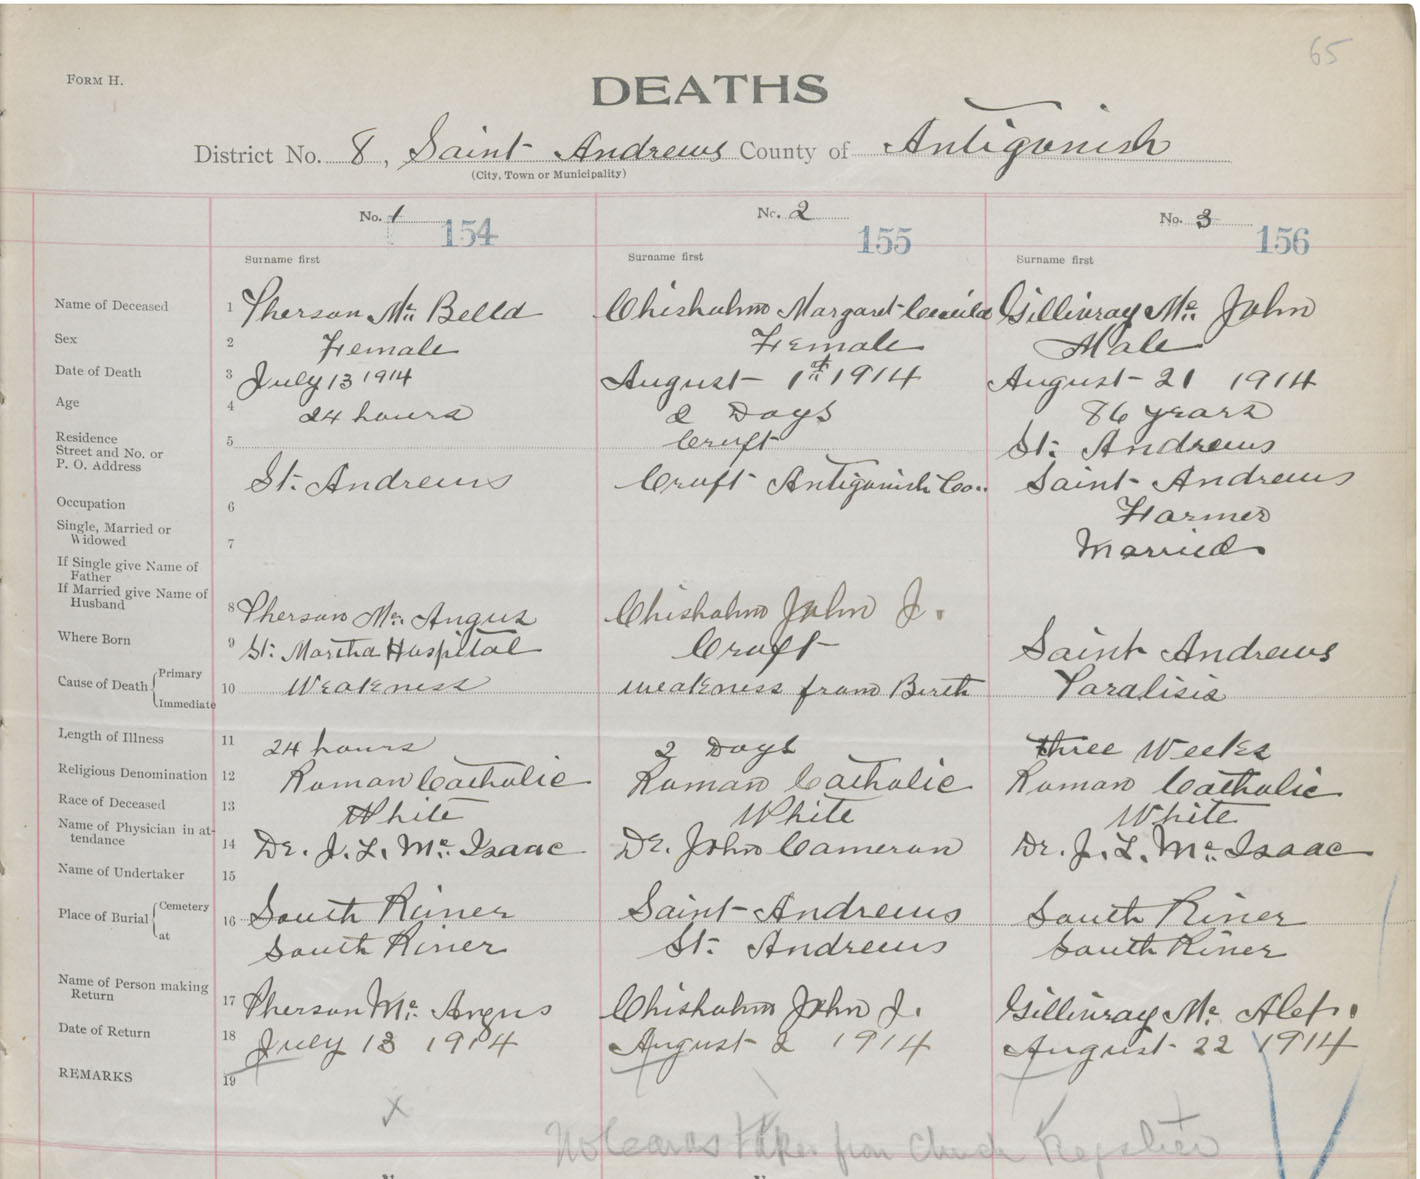 65
FORM H.
DEATHS
District No. 8, Saint Andrews County of Antigonish
(City, Town or Municipality)
No. 1 154 No. 2 155 No. 3 156
Surname first Surname first Surname first
Name of Deceased 1 Pherson Mc. Belld Chisholm Margaret Cecilia Gillivray Mc. John
Sex 2 Female Female Male
Date of Death 3 July 13 1914 August 1st 1914 August 21 1914
Age 4 24 hours 2 Days 86 years
Residence 5 Croft St. Andrews
Street and No. or
P. O. Address St. Andrews Croft Antigonish Co.. Saint Andrews
Occupation 6 Farmer
Single, Married or
Widowed 7 Married
If Single give Name of
Father
If Married give Name of
Husband 8 Pherson Mc. Angus Chisholm John J.
Where Born 9 St. Martha Hospital Croft Saint Andrews
Cause of Death Primary 10 Weakness weakness from Birth Paralisis
Immediate
Length of Illness 11 24 hours 2 Days three Weeks
Religious Denomination 12 Roman Catholic Roman Catholic Roman Catholic
Race of Deceased 13 White White White
Name of Physician in at-
tendance 14 Dr. J. L. Mc. Isaac Dr. John Cameron Dr. J. L. Mc. Isaac
Name of Undertaker 15
Place of Burial Cemetery 16 South River Saint Andrews South River
at South River St. Andrews South River
Name of Person making
Return 17 Pherson Mc. Angus Chisholm John J. Gillivray Mc. Alex.
Date of Return 18 July 13 1914 August 2 1914 August 22 1914
REMARKS 19
x
No Cards taken from Church Register